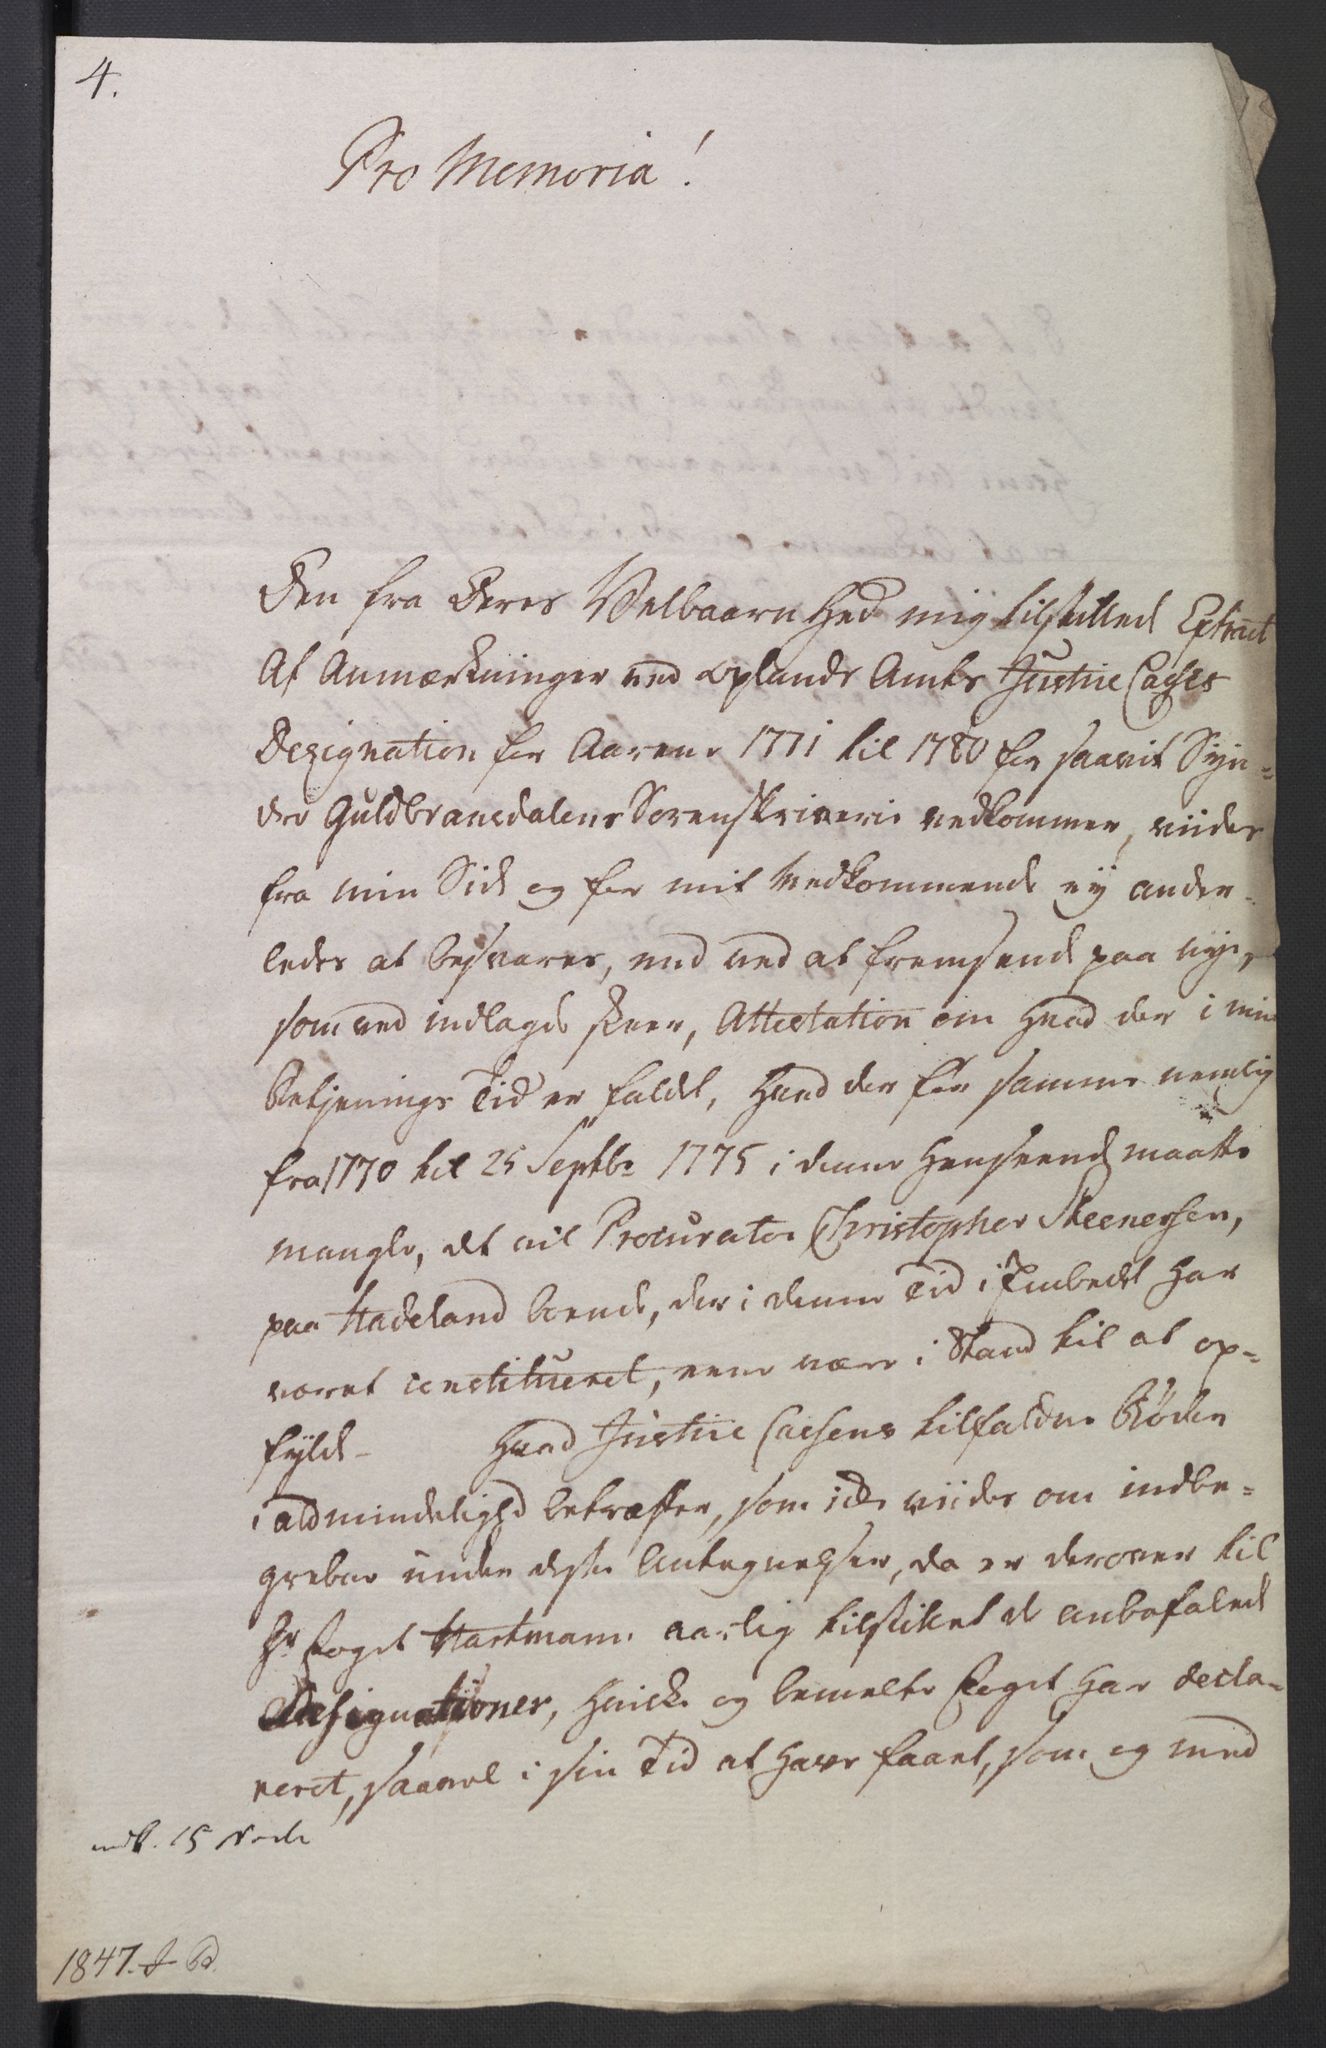 4.
Pro Memoria!
Den fra Deres Velbaarnhed mig tilstillede Extract
Af Anmærkninger ved Oplands Amts Justice Casses
Designation for Aarene 1771 til 1780 for saavit Syn=
dre Guldbransdalens Sorenskriverie vedkommer, viides
fra min Side og for mit Vedkommende ey ander=
ledes at besvares, end ved at fremsende paa nye,
som ved indlagde skeer, Attestation om hvad der i min
Betjenings Tid er faldt, hvad der for samme nemlig
fra 1770 til 25 Septbr 1775 i denne henseende maatte
mangle, det vil Procurator Christopher Steenersen,
paa Hadeland boende, der i denne Tid i Embedet har
været constitueret, eene være i Stand til at op=
fylde – hvad Justice Cassens tilfaldne Bøder
i aldmindelighed betræffer, som icke viides om indbe=
greben under disse Antegnelser, da er derover til
Hr Foged Hartmann aarlig tilstillet de anbefalede
Designationer, hvicke og bemelte Foget har decla=
reret, saavel i sin Tid at have faaet, som og med
indk. 15 Novbr
1847. J B.